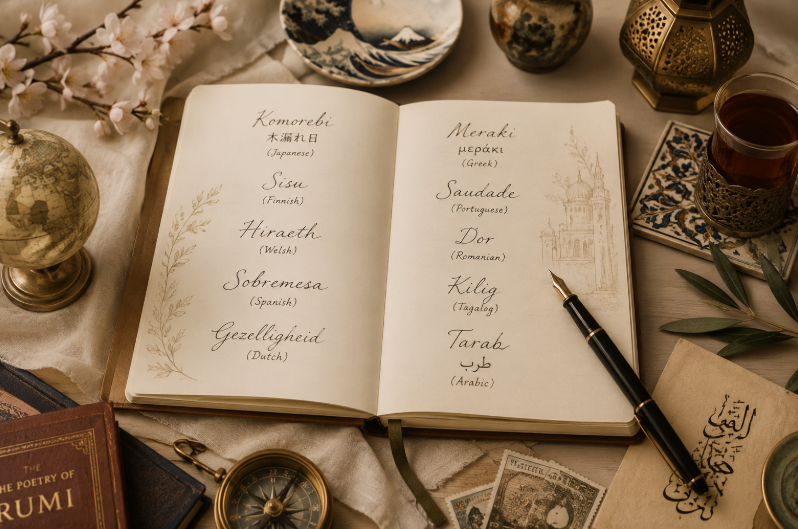 Komorebi
木漏れ日
(Japanese)
Sisu
(Finnish)
Hiraeth
(Welsh)
Sobremesa
(Spanish)
Gezelligheid
(Dutch)
Meraki
μεράκι
(Greek)
Saudade
(Portuguese)
Dor
(Romanian)
Kilig
(Tagalog)
Tarab
طرب
(Arabic)
THE
THE POETRY OF
RUMI